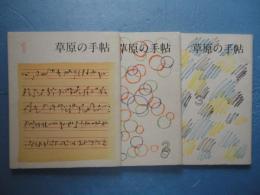 1
草原の手帖
草原の手帖
2
草原の手帖
3